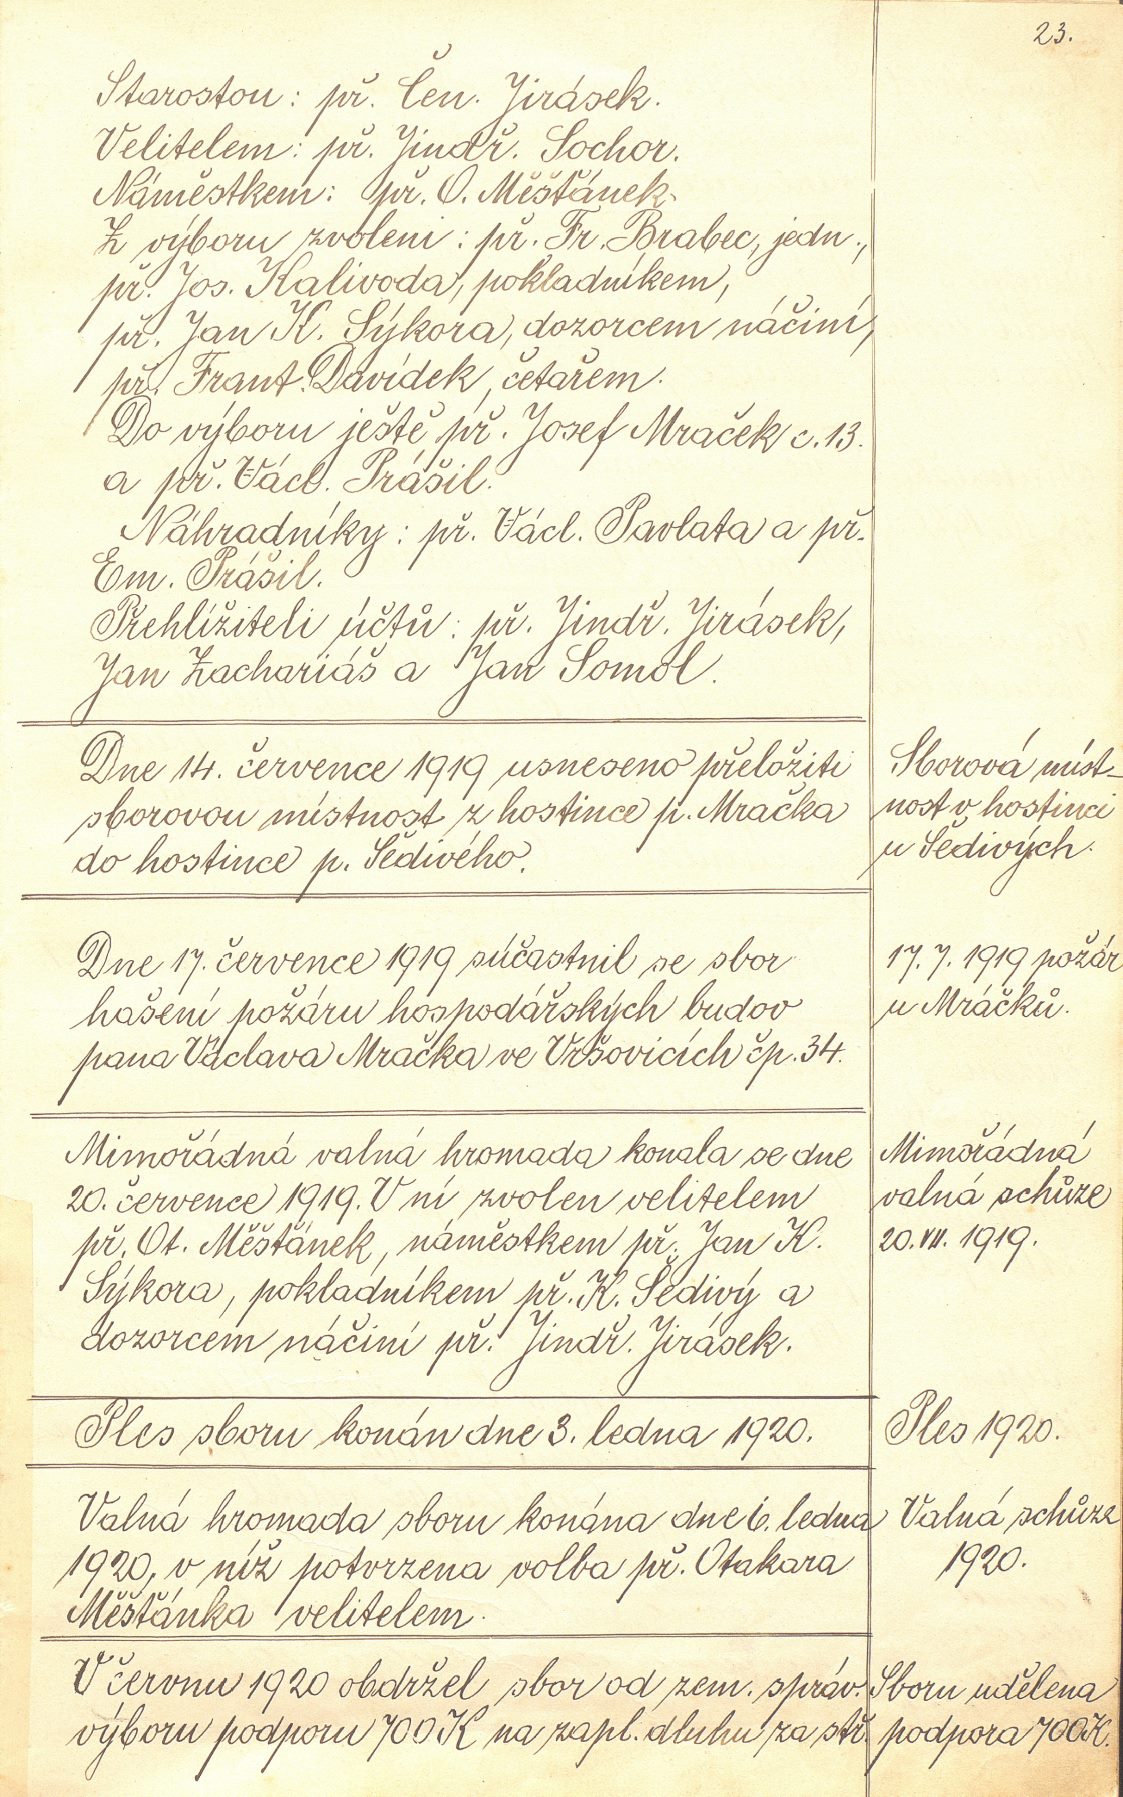 23.
Starostou: př. Čen. Jirásek.
Velitelem: př. Jindř. Sochor.
Náměstkem: př. O. Měšťánek.
Z výboru zvoleni: př. Fr. Brabec, jedn.,
př. Jos. Kalivoda, pokladníkem,
př. Jan K. Sýkora, dozorcem náčiní,
př. Frant. Davídek, četařem.
Do výboru ještě př. Josef Mraček č. 13.
a př. Václ. Prášil.
Náhradníky: př. Václ. Pavlata a př.
Em. Prášil.
Přehlížiteli účtů: př. Jindř. Jirásek,
Jan Zachariáš a Jan Somol.
Dne 14. července 1919 usneseno přeložiti
sborovou místnost z hostince p. Mračka
do hostince p. Šedivého.
Sborová míst-
nost v hostinci
u Šedivých.
Dne 17. července 1919 súčastnil se sbor
hašení požáru hospodářských budov
pana Václava Mračka ve Vršovicích čp. 34.
17. 7. 1919 požár
u Mráčků.
Mimořádná valná hromada konala se dne
20. července 1919. V ní zvolen velitelem
př. Ot. Měšťánek, náměstkem př. Jan K.
Sýkora, pokladníkem př. K. Šedivý a
dozorcem náčiní př. Jindř. Jirásek.
Mimořádná
valná schůze
20. VII. 1919.
Ples sboru konán dne 3. ledna 1920.
Ples 1920.
Valná hromada sboru konána dne 6. ledna
1920, v níž potvrzena volba př. Otakara
Měšťánka velitelem.
Valná schůze
1920.
V červnu 1920 obdržel sbor od zem. správ.
výboru podporu 700 K na zapl. dluhu za stř.
Sboru udělena
podpora 700 K.